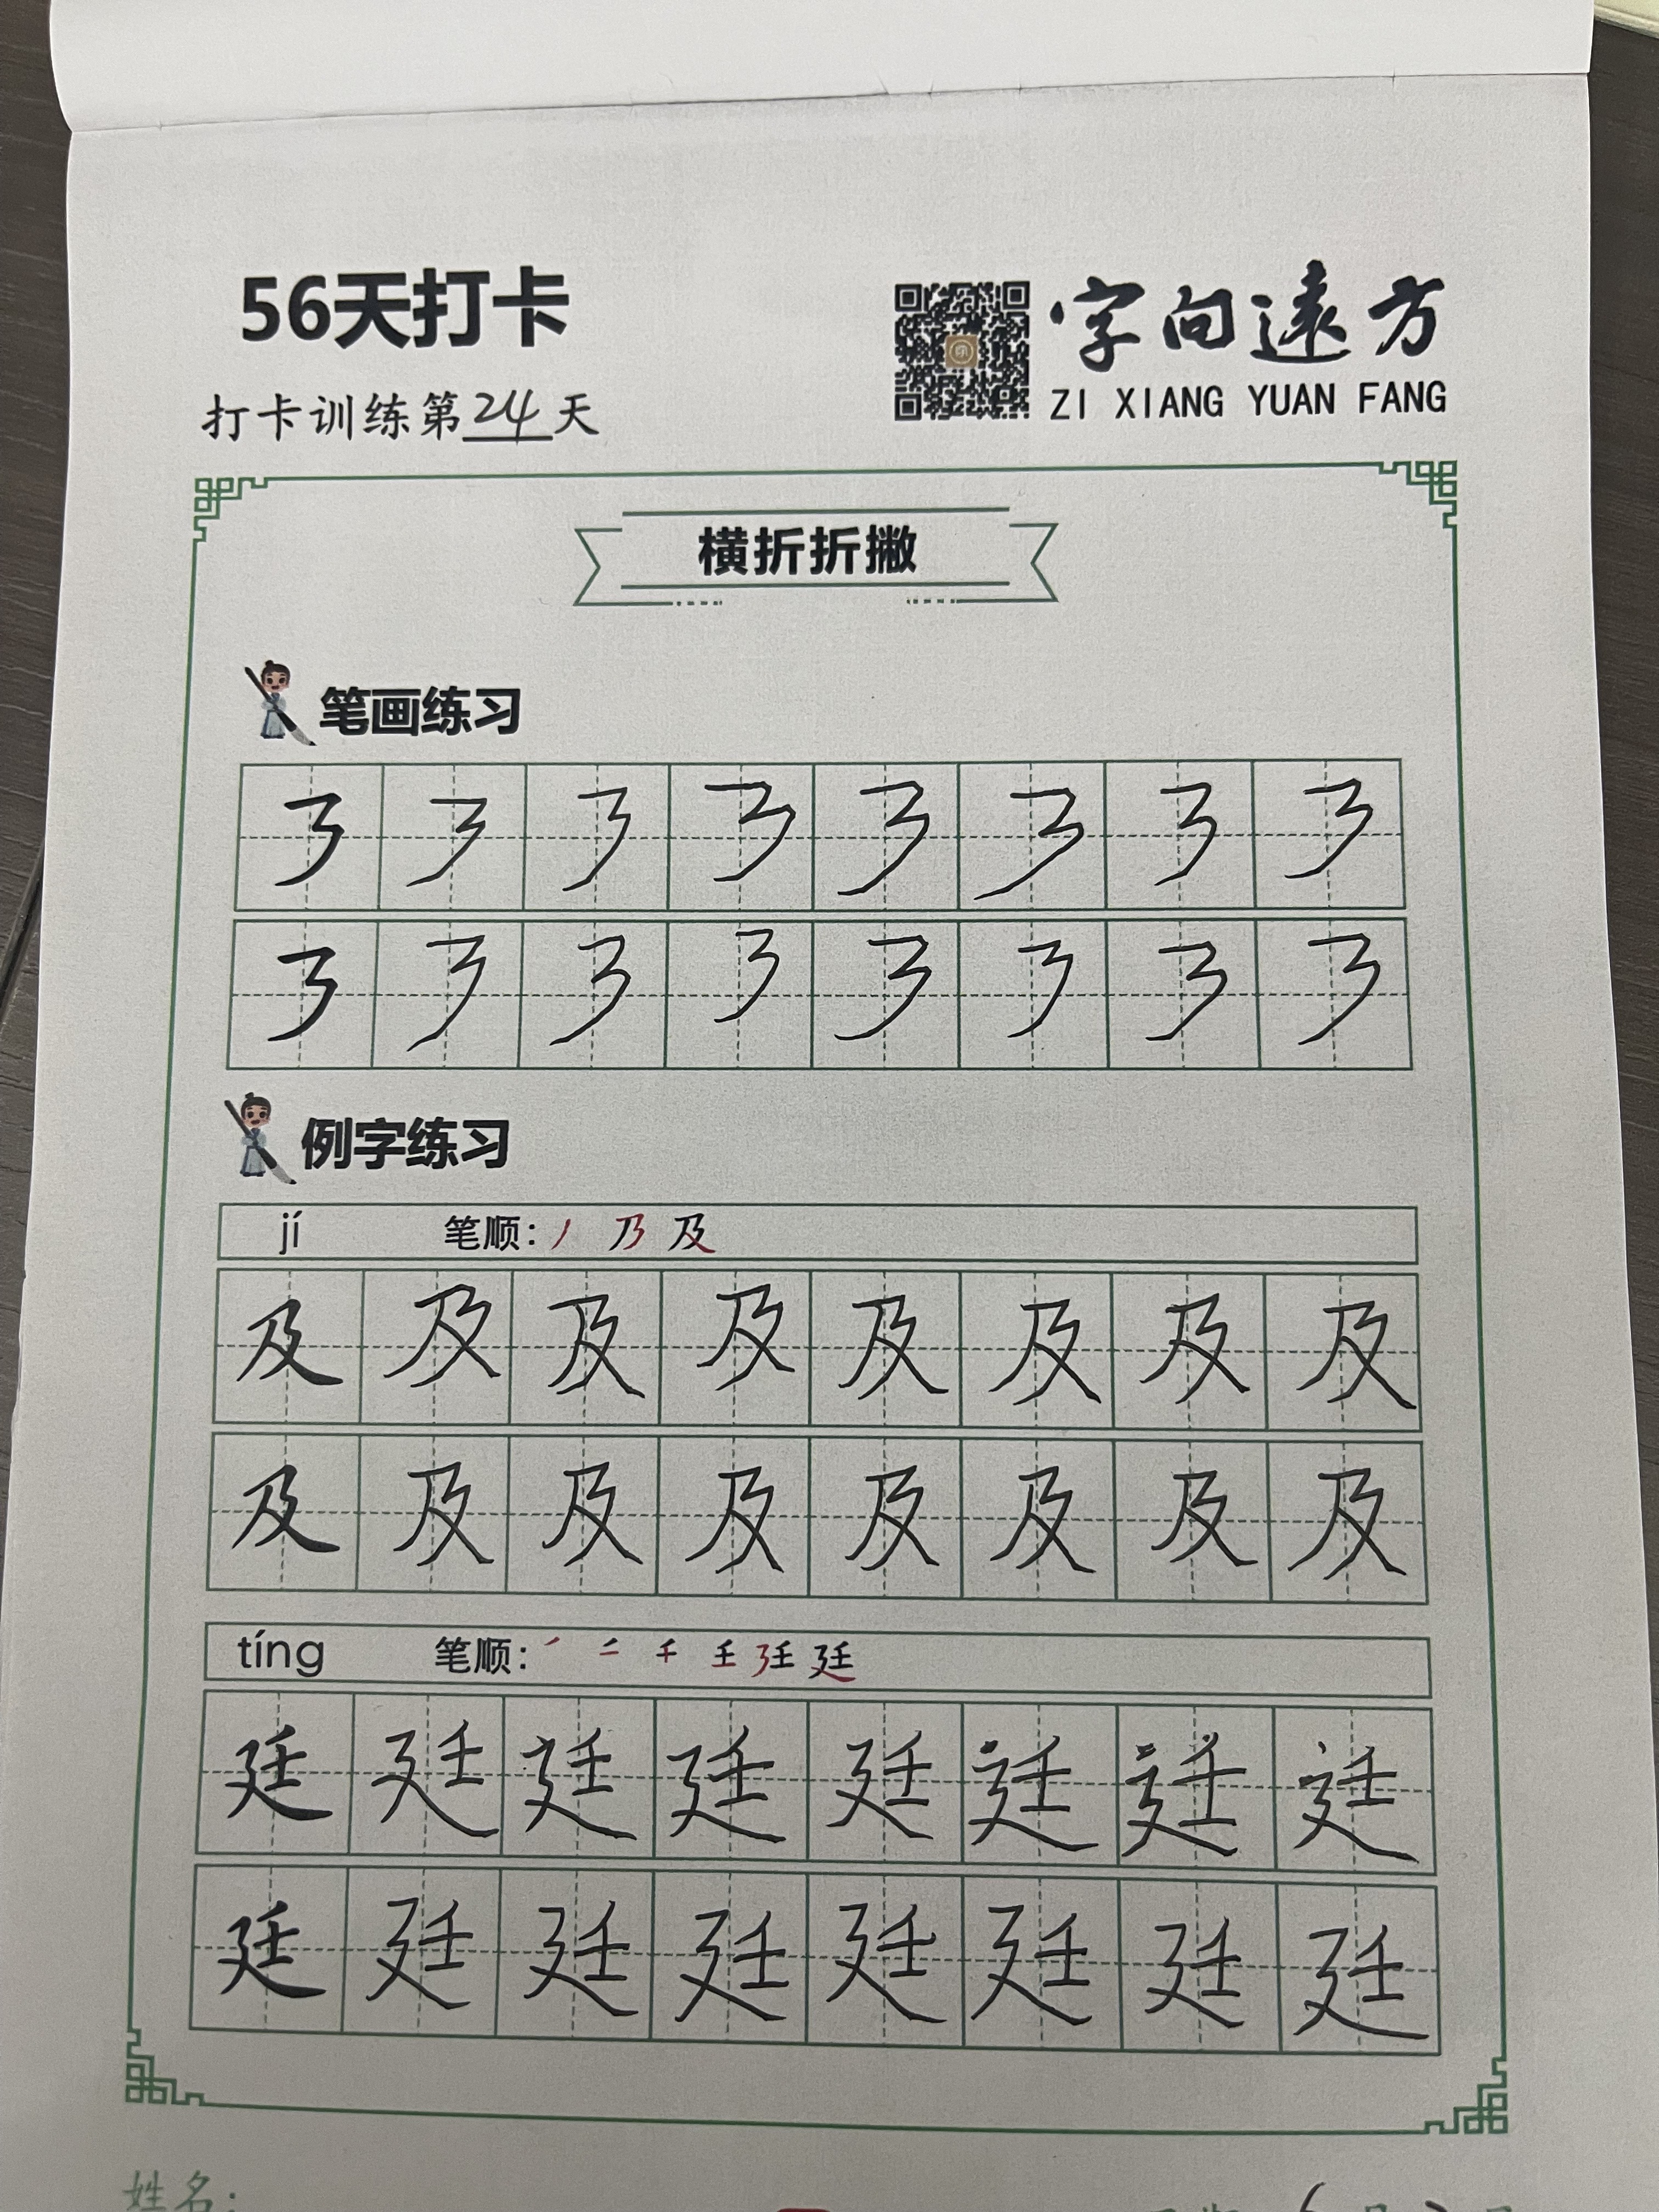 56天打卡
字向遠方
ZI XIANG YUAN FANG
打卡训练第24天
横折折撇
笔画练习
㇋ ㇋ ㇋ ㇋ ㇋ ㇋ ㇋ ㇋
㇋ ㇋ ㇋ ㇋ ㇋ ㇋ ㇋ ㇋
例字练习
jí 笔顺: 丿 乃 及
及 及 及 及 及 及 及 及
及 及 及 及 及 及 及 及
tíng 笔顺: 廷
廷 廷 廷 廷 廷 廷 廷 廷
廷 廷 廷 廷 廷 廷 廷 廷
姓名: